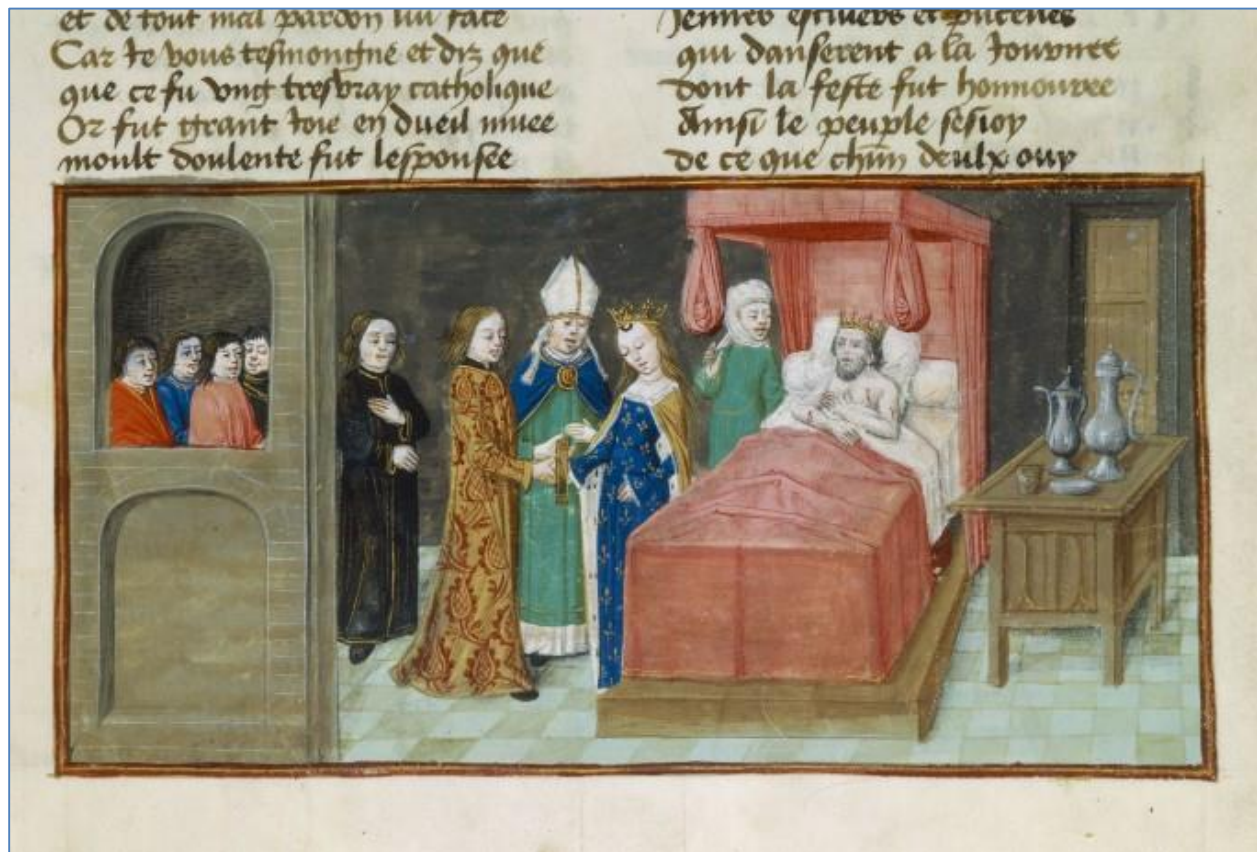 et de tout mal pardon lui face
Car Je vous tesmongne et diz que
que ce fu vng tresvray catholique
Or fut grant Joie en dueil muee
moult doulente fut lespousee
Jennes escuiers et pucelles
qui danserent a la Journee
dont la feste fut honnouree
Ainsi le peuple sesioy
de ce que chũn deulx ouy